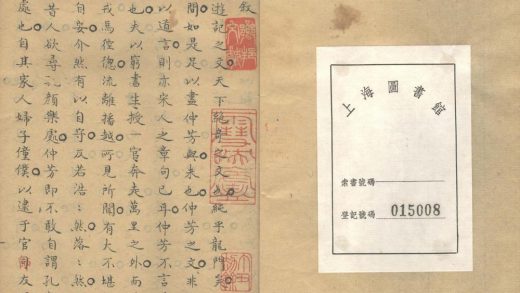 敘
遊記之文天下絕奇之文也純乎龍門矣
間如是足以盡仲芳與未也仲芳之文非
以道言則亦宋人之章句已耳仲芳不言
也夫以窮書生授一官奔走萬里之外而
戎馬倥傯流離播越所見所聞有大不堪
自妄介然有以自守反若浩〻然落〻然
昔人欲尋孔顏樂處仲芳即不敢自謂孔
處也自其家人婦子僮僕以逮于官司友
上海圖書館
索書號碼
登記號碼 015008